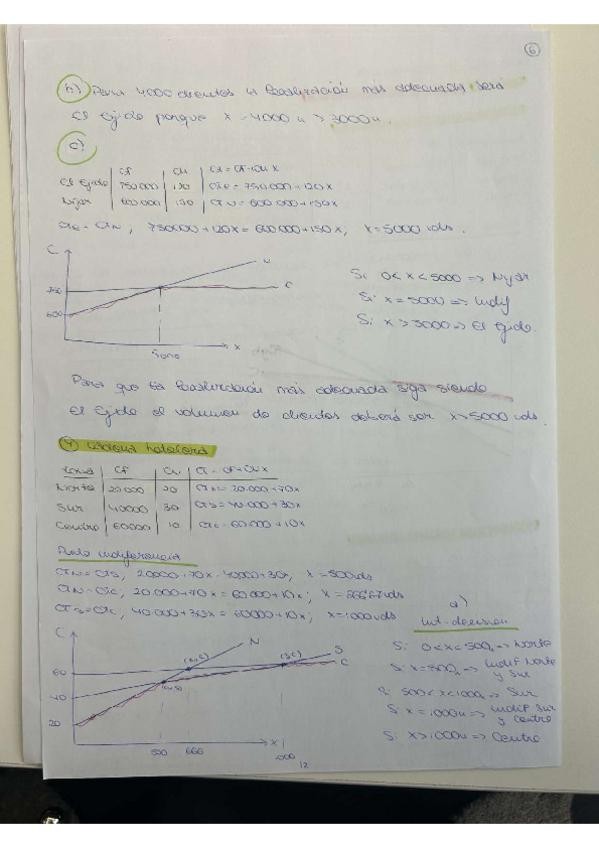 6
b) Para 4000 clientes la localización más adecuada será
El Ejido porque x = 4000 u > 3000 u.
c)
CF | CU | CT = CF + CU x
El Ejido | 750 000 | 120 | CTE = 750.000 + 120x
Nijar | 600 000 | 150 | CTN = 600 000 + 150x
CTE = CTN, 750.000 + 120x = 600 000 + 150x, x = 5000 uds.
C
N
750
E
600
5000
x
Si 0 < x < 5000 => Nijar
Si x = 5000 => Indif
Si x > 5000 => El Ejido.
Para que la localización más adecuada siga siendo
El Ejido el volumen de clientes deberá ser x > 5000 uds.
9 Cadena hotelera
Zona | CF | CU | CT = CF + CU x
Norte | 20.000 | 70 | CTN = 20.000 + 70x
Sur | 40000 | 30 | CTS = 40.000 + 30x
Centro | 60000 | 10 | CTC = 60.000 + 10x
Punto indiferencia
CTN = CTS, 20000 + 70x = 40000 + 30x, x = 500 uds
CTN = CTC, 20.000 + 70x = 60.000 + 10x; x = 666'67 uds
CTS = CTC, 40.000 + 30x = 60000 + 10x; x = 1000 uds
a)
Int. decision
C
N
S
C
(N,C)
(S,C)
(N,S)
60
40
20
500
666
1000
x
12
Si 0 < x < 500u => Norte
Si x = 500u => Indif Norte
y Sur
Si 500 < x < 1000u => Sur
Si x = 1000u => Indif Sur
y Centro
Si x > 1000u => Centro